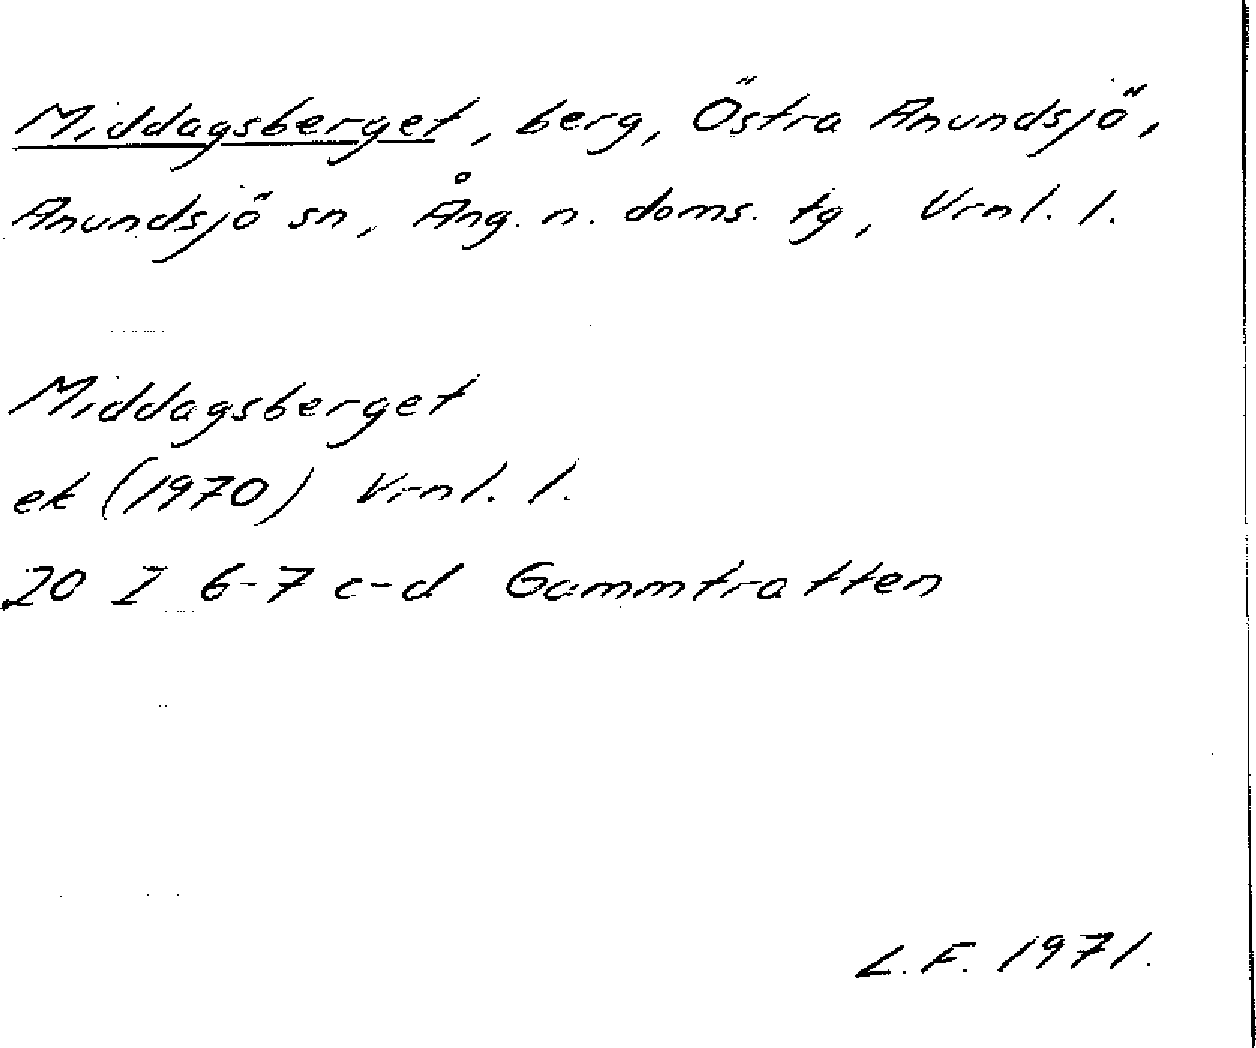 Middagsberget, berg, Östra Anundsjö,
Anundsjö sn, Ång. n. doms. tg, Vrnl. l.
Middagsberget
ek (1970) Vrnl. l.
20 I 6-7 c-d Gammtratten
L.F. 1971.